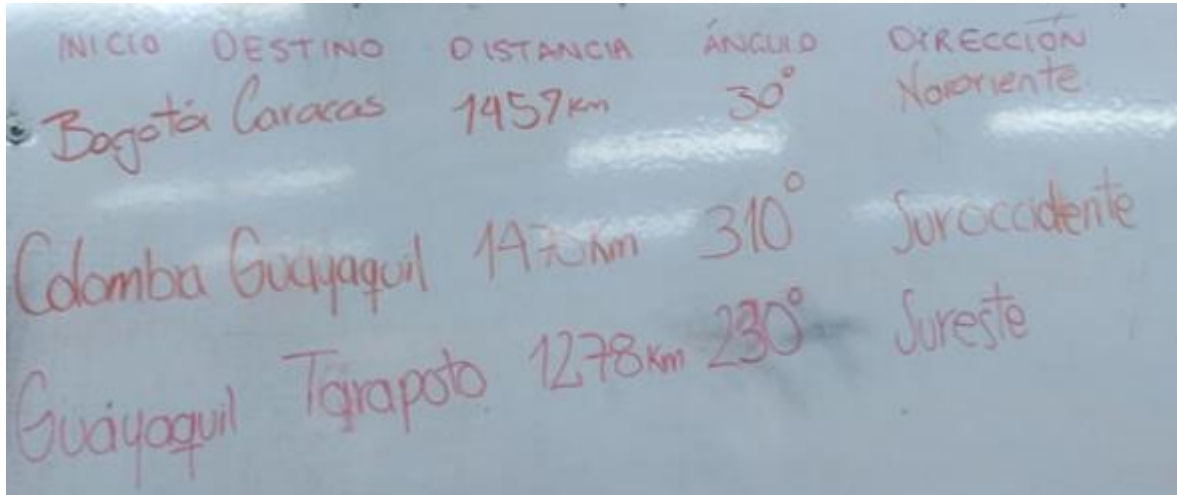 INICIO DESTINO DISTANCIA ÁNGULO DIRECCIÓN
Bogotá Caracas 1457km 30° Nororiente
Colomba Guayaquil 1470km 310° Suroccidente
Guáyaquil Tarapoto 1278km 230° Sureste